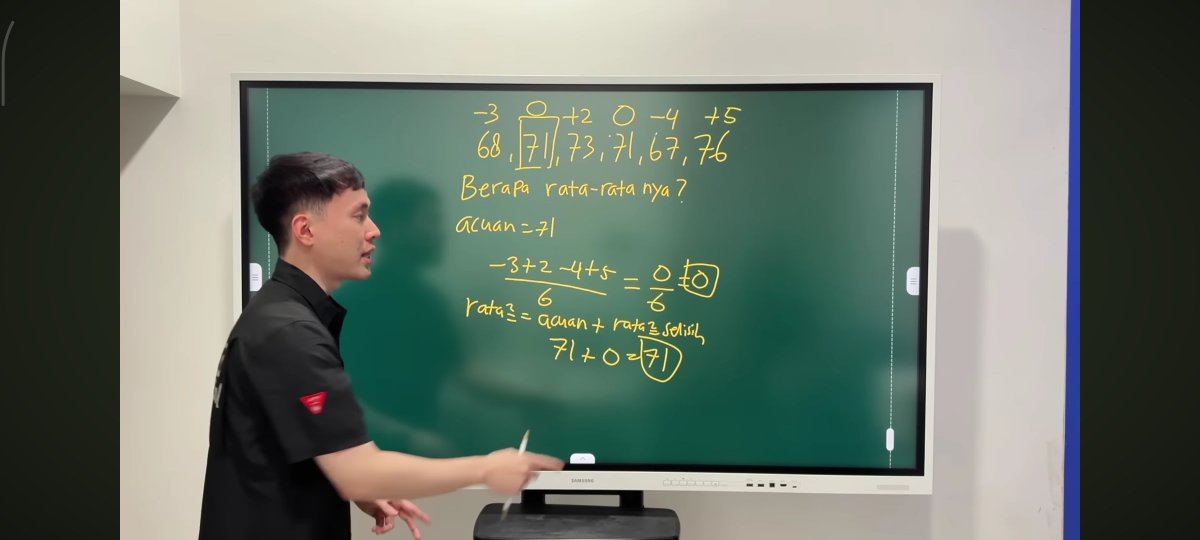 -3 0 +2 0 -4 +5
68, 71, 73, 71, 67, 76
Berapa rata-rata nya?
acuan = 71
-3+2 -4+5 = 0 = 0
6 6
rata2 = acuan + rata2 selisih
71 + 0 = 71
SAMSUNG